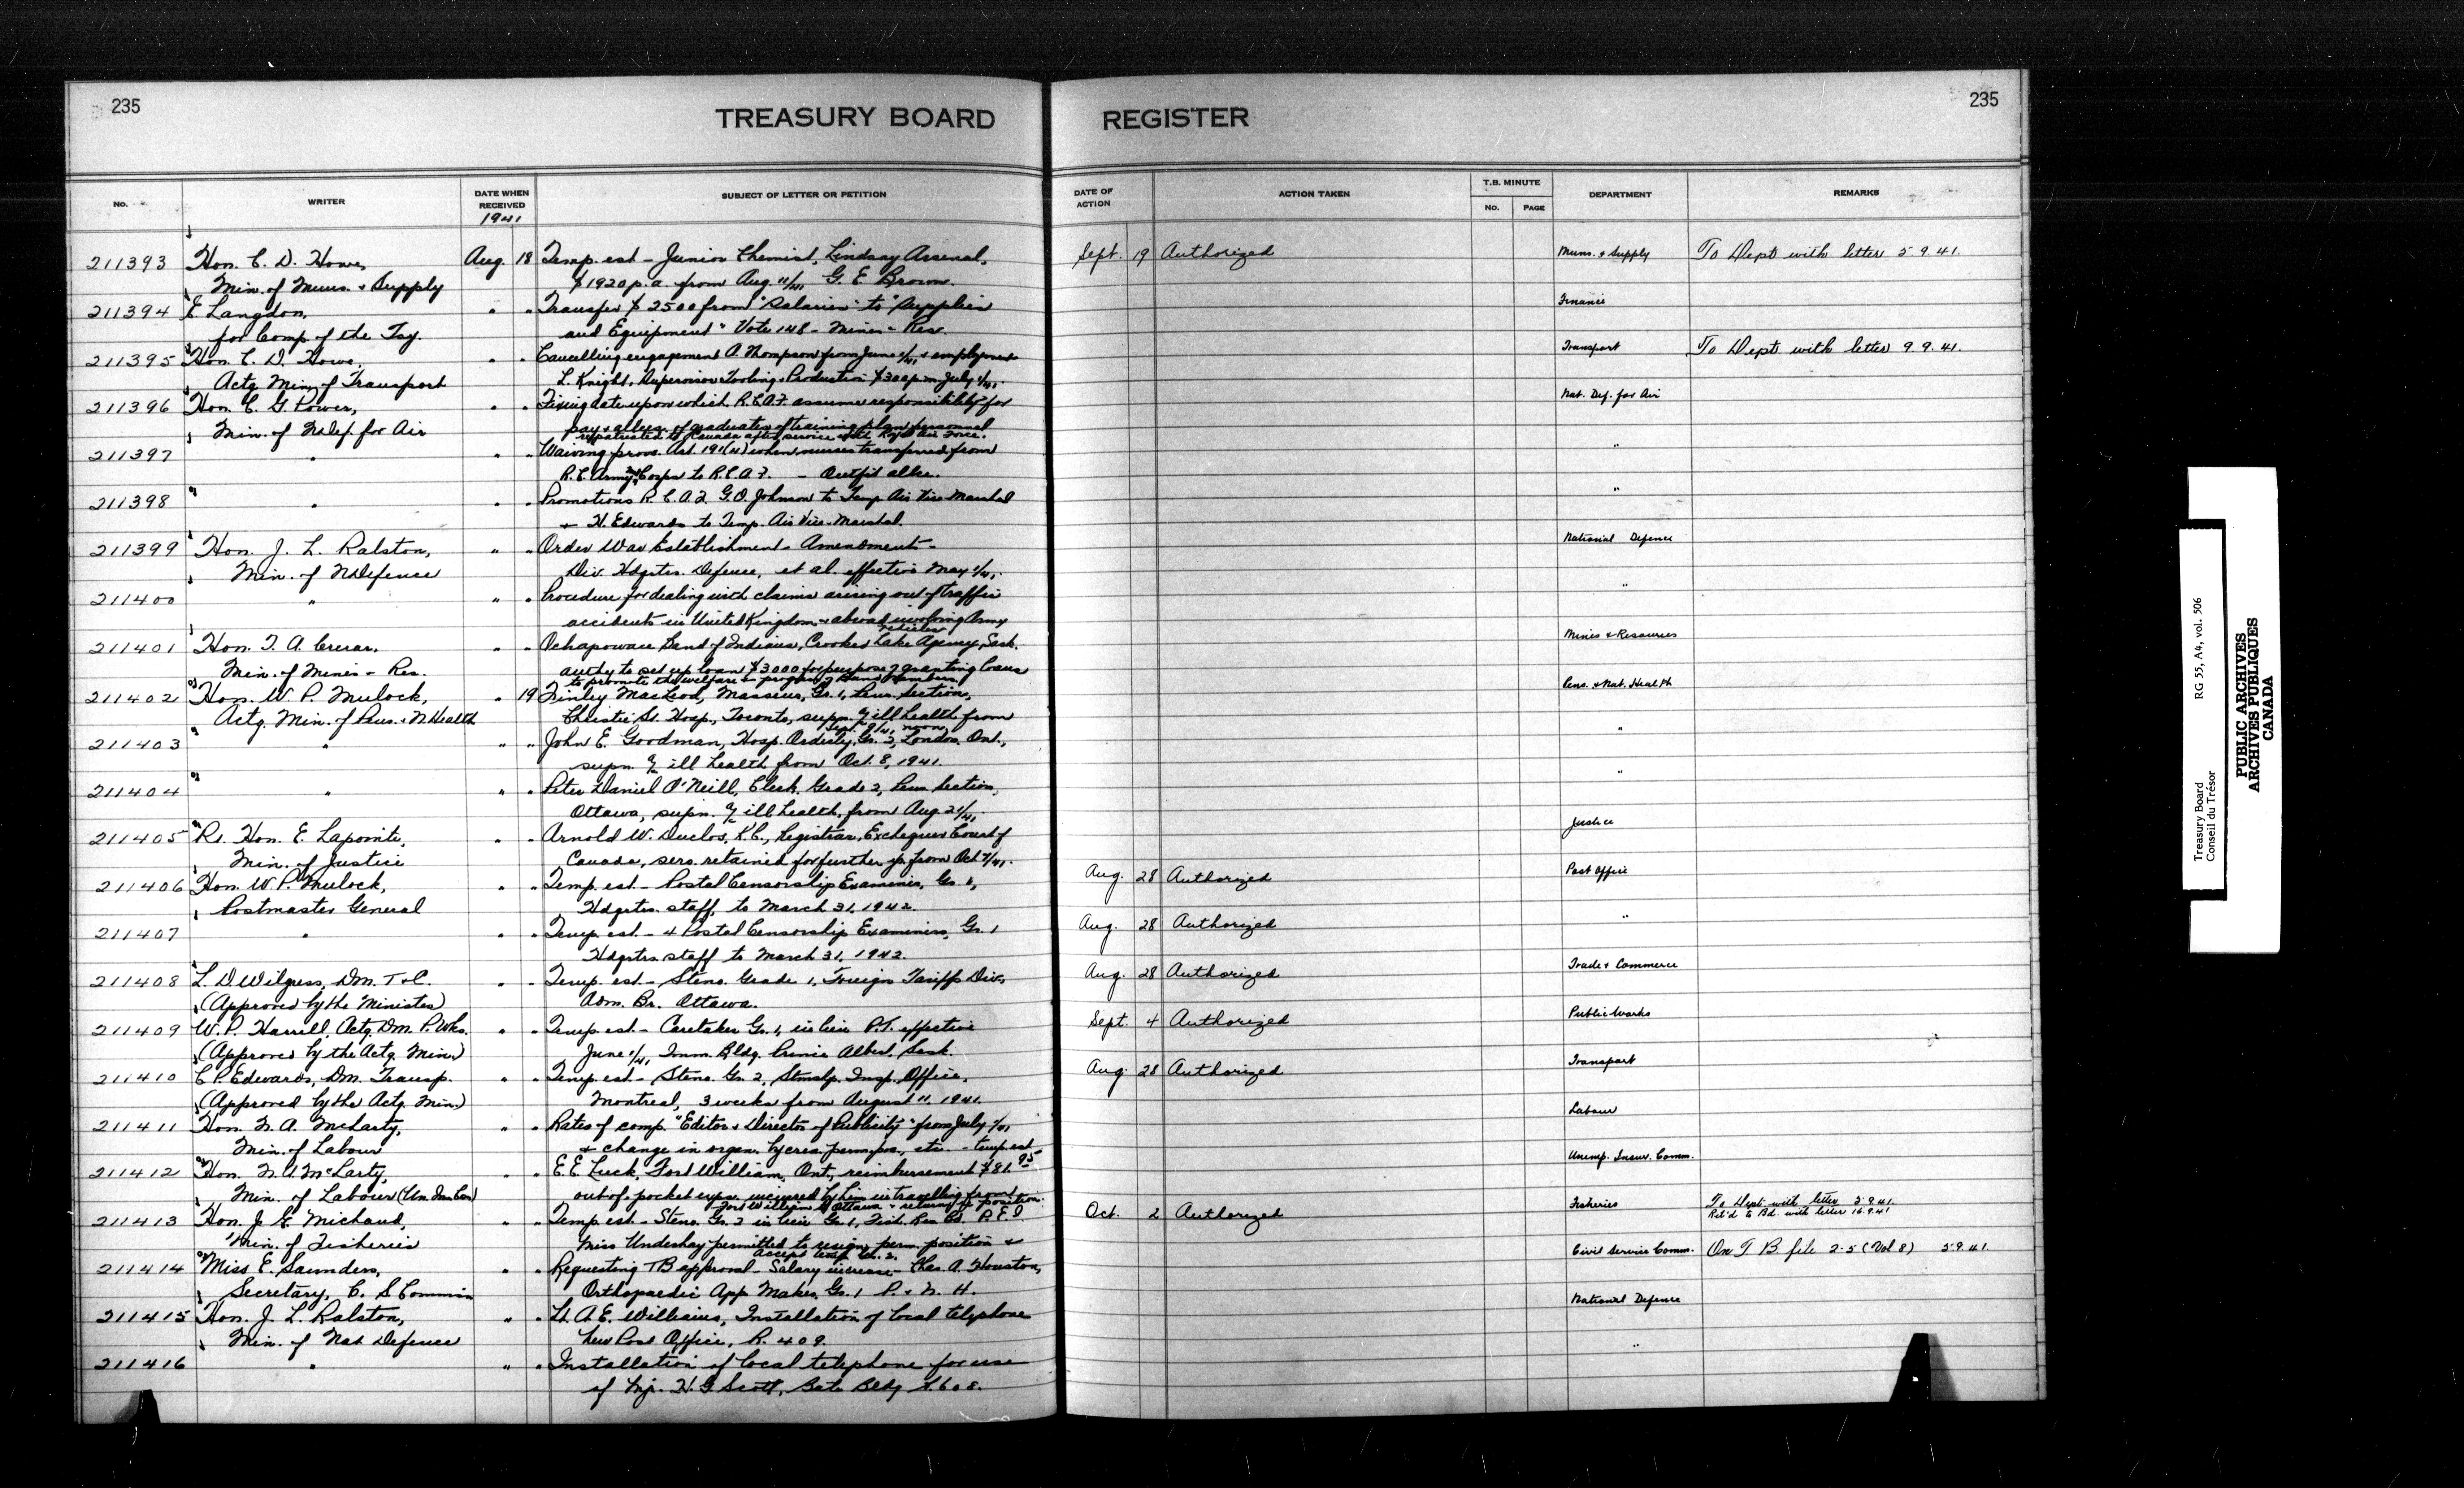 235
TREASURY BOARD REGISTER
235
No. WRITER DATE WHEN RECEIVED SUBJECT OF LETTER OR PETITION DATE OF ACTION ACTION TAKEN T.B. MINUTE No. PAGE DEPARTMENT REMARKS
1941
211393 Hon. C. D. Howe, Aug. 18 Temp. est - Junior Chemist, Lindsay Arsenal, Sept. 19 Authorized Muns. & Supply To Dept with letter 5.9.41.
Min. of Muns. & Supply $1920 p.a. from Aug. 11/41, G. E. Brown.
211394 E. Langdon, " " Transfer $2500 from "Salaries" to "Supplies Finance
for Comp. of the Tsy. and Equipment" Vote 148 - Mines & Res.
211395 Hon. C. D. Howe, " " Cancelling engagement A. Thompson from June 1/41, & employment Transport To Dept with letter 9.9.41.
Actg. Min. of Transport L. Knight, Supervisor Tooling & Production $300 p.m. July 1/41.
211396 Hon. C. G. Power, " " Fixing date upon which R.C.A.F. assume responsibility for Nat. Def. for Air
Min. of N. Def. for Air pay & allces. of graduates of training plan personnel
repatriated to Canada after service with Royal Air Force.
211397 " " " Waiving provs. Art. 191(4) when nurses transferred from "
R.C. Army Med Corps to R.C.A.F. - Outfit allce.
211398 " " " Promotions R.C.A.F. G.O. Johnson to Temp. Air Vice-Marshal "
& H. Edwards to Temp. Air Vice-Marshal.
211399 Hon. J. L. Ralston, " " Order War Establishment - Amendments - National Defence
Min. of N Defence Div. Hdqrtrs. Defence, et al. effective May 1/41.
211400 " " " Procedure for dealing with claims arising out of traffic "
accidents in United Kingdom & abroad involving Army
vehicles
211401 Hon. T. A. Crerar, " " Ochapowace Band of Indians, Crooked Lake Agency, Sask. Mines & Resources
Min. of Mines & Res. authy to set up loan $3000 for purpose of granting loans
to promote the welfare & progress of Band members.
211402 Hon. W. P. Mulock, " 19 Finley MacLeod, Masseur, Gr. 1, Pens. Section, Pens. & Nat. Health
Actg. Min. of Pens. & N Health Christie St. Hosp., Toronto, supn. a/c ill health from
Sept. 9/41, noon.
211403 " " " John E. Goodman, Hosp. Orderly, Gr. 2, London, Ont., "
supn. a/c ill health from Oct. 8, 1941.
211404 " " " Peter Daniel O'Neill, Clerk, Grade 2, Pens. Section, "
Ottawa, supn. a/c ill health, from Aug. 21/41.
211405 Rt. Hon. E. Lapointe, " " Arnold W. Duclos, K.C., Registrar, Exchequer Court of Justice
Min. of Justice Canada, sers. retained for further yr. from Oct
211406 Hon. W. P. Mulock, " " Temp. est - Postal Censorship Examiner, Gr. Aug. 28 Authorized Post Office
Postmaster General Hdqrtrs. staff, to March 31, 1942.
211407 " " " Temp. est - 4 Postal Censorship Examiners, Gr. 1 Aug. 28 Authorized "
Hdqrtrs. staff to March 31, 1942.
211408 L. D Wilgress, Dm. T & C. " " Temp. est - Steno. Grade 1, Foreign Tariffs Div. Aug. 28 Authorized Trade & Commerce
(Approved by the Minister) Adm. Br. Ottawa.
211409 W. P. Harrell, Actg. Dm. P. Wks. " " Temp. est - Caretaker Gr. 1, in lieu P.T. effective Sept. 4 Authorized Public Works
(Approved by the Actg. Min.) June 1/41, Imm. Bldg. Prince Albert, Sask.
211410 C P. Edwards, Dm. Transp. " " Temp est - Steno. Gr. 2, Stmshp. Insp. Office, Aug. 28 Authorized Transport
(Approved by the Actg. Min.) Montreal, 3 weeks from August 11, 1941.
211411 Hon. N. A. McLarty, " " Rates of comp. "Editor & Director of Publicity" from July 1/41 Labour
Min. of Labour & change in organ. by crea. perm. pos., etc. - temp. est
211412 Hon. N. A. McLarty, " " E. E. Luck, Fort William, Ont., reimbursement $81.95 Unemp. Insur. Comm.
Min. of Labour (Un. Ins Com) out of pocket exps. incurred by him in travelling from
Fort William to Ottawa & return position.
211413 Hon. J. E. Michaud, " " Temp. est - Steno. Gr. 2 in lieu Gr. 1, Fish. Res. Bd. P.E.I Oct. 2 Authorized Fisheries To Dept with letter 5.9.41.
Ret'd to Bd. with letter 16.9.41
Min. of Fisheries Miss Undeshay permitted to resign perm. position &
accept temp. Gr. 2.
211414 Miss E. Saunders, " " Requesting TB approval - Salary increase - Chas. A. Houston, Civil Service Comm. On T B file 2-5 (Vol 8) 5.9.41.
Secretary, C. S Commission Orthopaedic App. Maker, Gr. 1 P. & N. H.
211415 Hon. J. L. Ralston, " " Lt. A. E. Williams, Installation of local telephone National Defence
Min. of Nat Defence New Post Office, R. 409.
211416 " " " Installation of local telephone for use "
of Mjr. H. G Scott, Bate Bldg R. 608.
Treasury Board RG 55, A4, vol. 506
Conseil du Trésor
PUBLIC ARCHIVES
ARCHIVES PUBLIQUES
CANADA